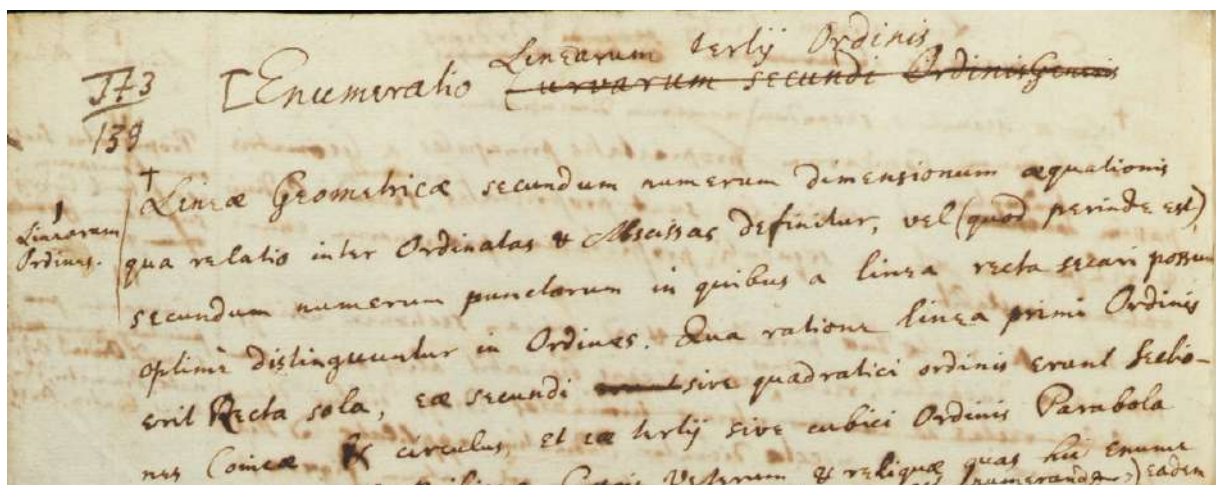 Linearum tertij Ordinis
[Enumeratio Curvarum secundi Ordinis Generis
173
139
†Lineæ Geometricæ secundum numerum dimensionum æquationis
1
Linearum
Ordines.
qua relatio inter Ordinatas & Abscissas definitur, vel (quod perinde est)
secundum numerum punctorum in quibus a linea recta secari possunt
optimè distinguuntur in Ordines. Qua ratione linea primi Ordinis
erit Recta sola, eæ secundi sive quadratici ordinis erunt Sectio-
nes Conicæ & circulus, et eæ tertij sive cubici Ordinis Parabola
Veterum & reliquæ quas hic enume